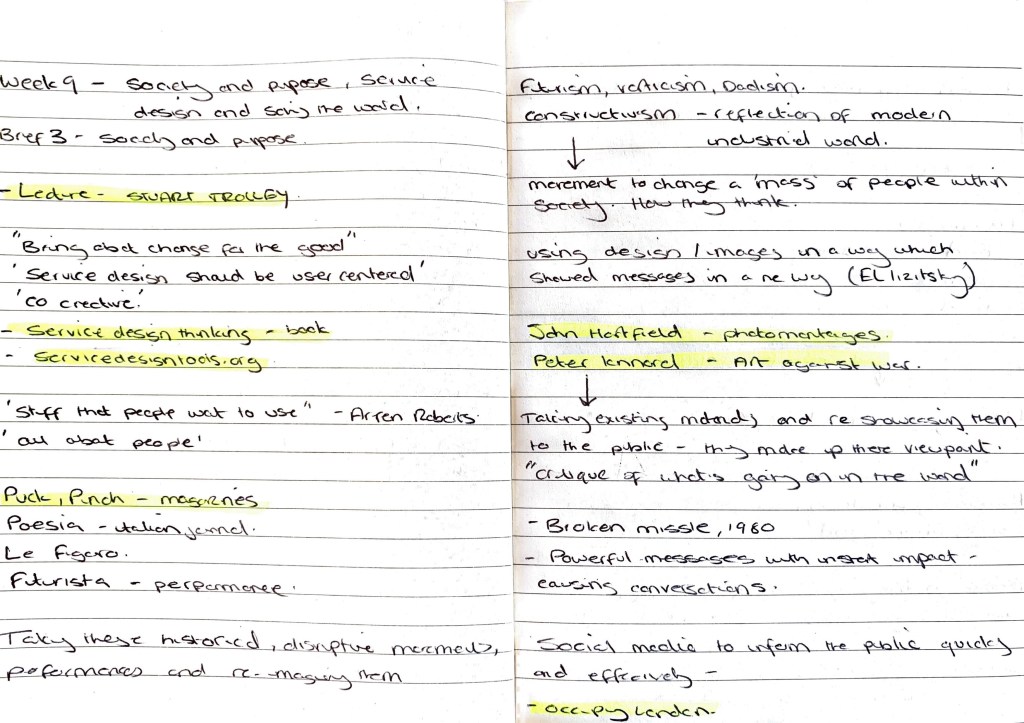 Week 9 - Society and purpose, Service
design and saving the world.
Brief 3 - society and purpose.
- Lecture - STUART TROLLEY.
"Bring about change for the good"
'Service design should be user centered'
'co creative.'
- Service design thinking - book
- servicedesigntools.org
'Stuff that people want to use" - Arren Roberts.
'all about people'
Puck, Punch - magazines
Poesia - italian journal.
Le Figaro.
Futurista - performance.
Taking these historical, disruptive movements,
performances and re-imaging them
Futurism, vorticism, Dadism.
constructivism - reflection of modern
industrial world.
↓
movement to change a 'mass' of people within
society. How they think.
using design / images in a way which
showed messages in a new way (EL lizitsky)
John Heartfield - photomontages.
Peter Kennard - Art against war.
↓
Taking existing materials and re showcasing them
to the public - they make up there viewpoint.
"critique of what's going on in the world"
- Broken missle, 1980
- Powerful messages with instant impact -
causing conversations.
Social media to inform the public quickly
and effectively -
- occupy London.